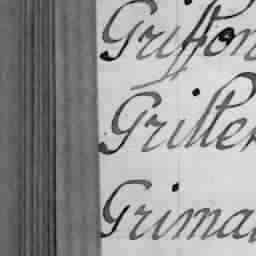 Griffon
Griller
Grima